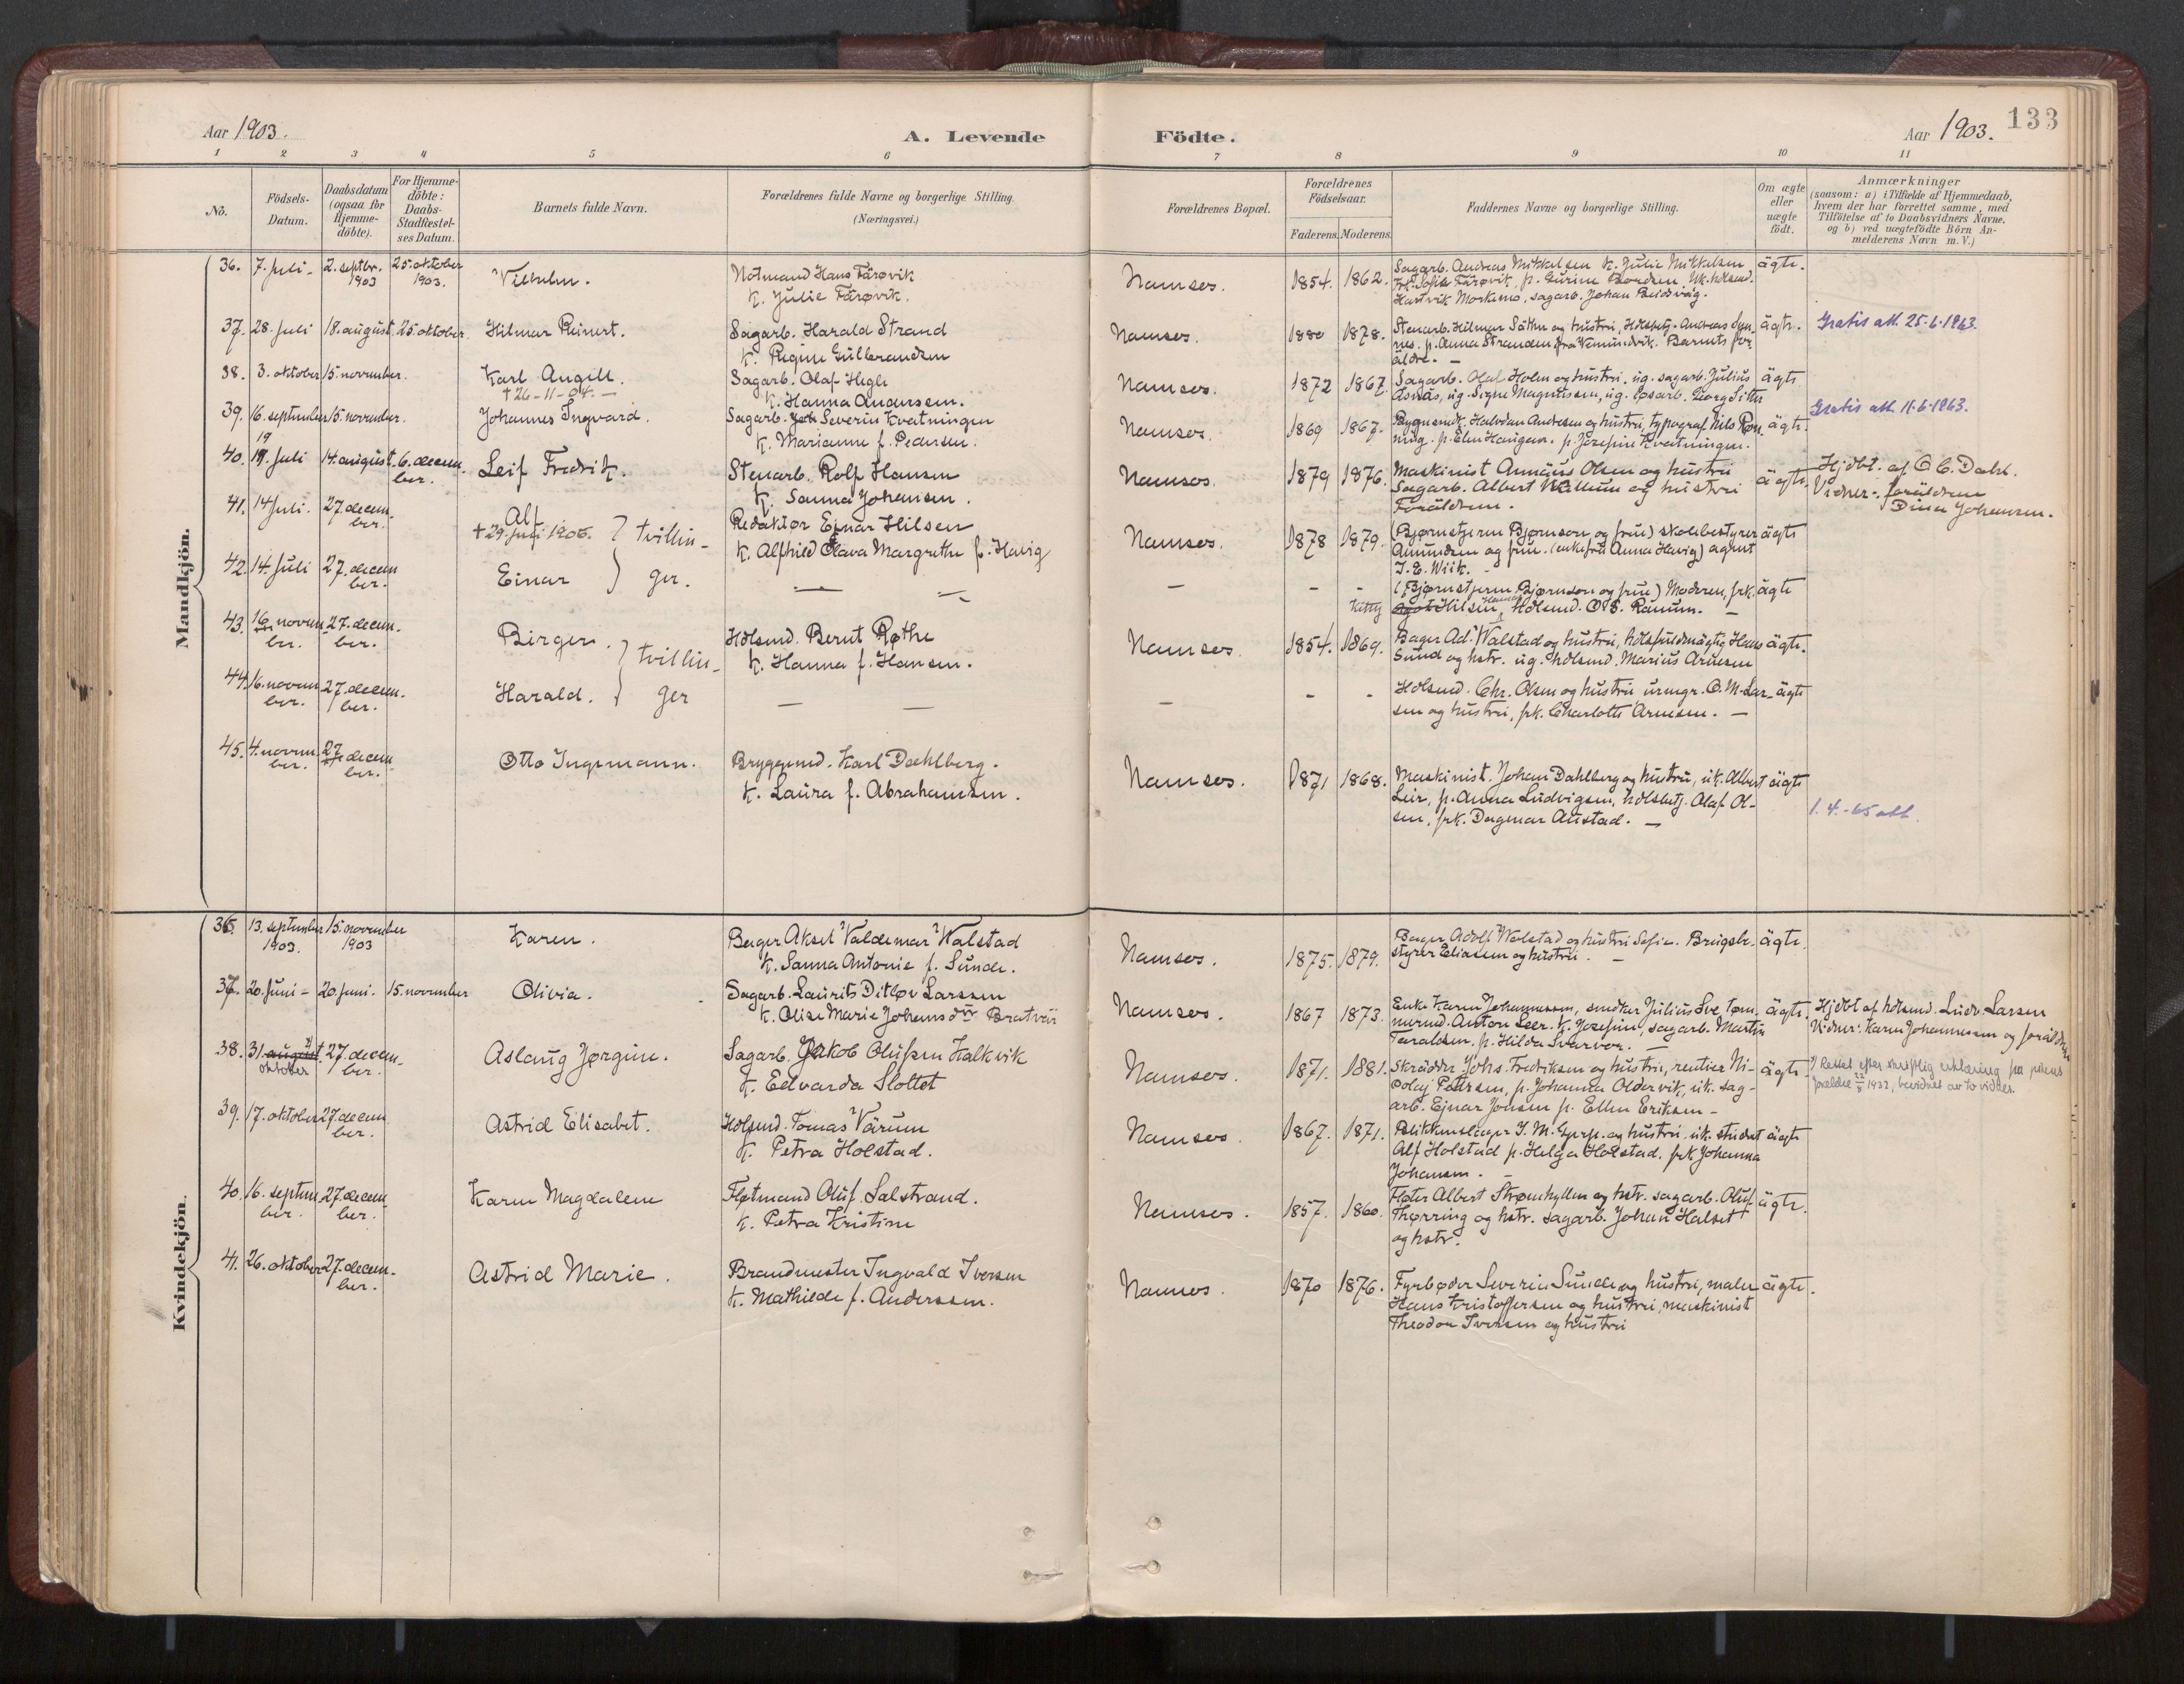 Aar 1903.
A. Levende Födte.
Aar 1903.
133
1 2 3 4 5 6 7 8 9 10 11
Nö.
Födsels-Datum.
Daabsdatum (ogsaa for Hjemme-döbte).
For Hjemme-döbte: Daabs-Stadfæstel-ses Datum.
Barnets fulde Navn.
Forældrenes fulde Navne og borgerlige Stilling.
(Næringsvei.)
Forældrenes Bopæl.
Forældrenes Födselsaar.
Faderens. Moderens.
Faddernes Navne og borgerlige Stilling.
Om ægte eller uægte födt.
Anmærkninger
(saasom: a) i Tilfælde af Hjemmedaab, hvem der har forrettet samme, med Tilföielse af to Daabsvidners Navne, og b) ved uægtefödte Börn Anmelderens Navn m. V.)
Mandkjön.
36. 7. juli - 2. septbr. 1903 25. oktober 1903. Vilhelm. Notmand Hans Färøvik
K. Julie Färøvik. Namsos. 1854. 1862. Sagarb. Andreas Mikkelsen K. Julie Mikkelsen ägte.
Hartvik Morkemo, sagarb. Johan Beidsvåg.
37. 28. juli 18. august 25. oktober Hilmar Reinert. Sagarb. Harald Strand
K. Regine Gulbrandsen Namsos. 1880 1878. Stenarb. Hilmar Säther og hustru, Hdlsbetj. Andreas Sm- ägte. Gratis att. 25-6-1963.
nes. p. Anna Stranden fra Vemundvik. Barnets for
äldre. -
38. 3. oktober 15. november. Karl Angell. Sagarb. Olaf Hegle
† 26-11-04. - K. Hanna Andersen. Namsos. 1872 1867. Sagarb. Olaf Holm og hustru, ug. sagarb. Julius ägte
Asnäs, ug. Signe Magnussen, ug. løsarb. Georg Sæther
39. 16. september 15. november. Johannes Ingvard. Sagarb. Severin Kvatningen
K. Marianne f. Pedersen. Namsos. 1869 1867. Bygmsmd. Halvdan Andersen og hustru, typograf Nils Røn- ägte. Gratis att. 11-6-1963.
ning. p. Elen Haugan. p. Josefine Kvatningen.
40. 19 juli 14. august. 6. december. Leif Fredrik. Stenarb. Rolf Hansen
K. Sanna Johansen. Namsos. 1879 1876. Maskinist Annäus Olsen og hustru ägte. Hjdbt. af O C. Dahl.
Sagarb. Albert Mellum og hustru Vidner: foräldrene
Foräldrene. Dina Johansen.
41. 14 juli. 27. december. Alf
† 29. juni 1905. } tvillin- Redaktør Ejnar Hilsen
K. Alfhild Olava Margrethe f. Havig Namsos. 1878 1879. (Bjørnstjerne Bjørnson og frue) skolebestyrer ägte
Amundsen og frue. (enkefru Anna Havig) agent
J. E. Wiik. -
42. 14. juli 27. december. Einar } ger. — — — - - (Bjørnstjerne Bjørnson og frue) Moderen, frk. ägte
Kitty Hilsen, Hdlsmd. O S. Ranum. -
43. 16. november. 27. december. Birger. } tvillin- Hdlsmd. Bernt Røthe
K. Hanna f. Hansen. Namsos 1854. 1869. Bager Ad. Walstad og hustru, hdlsfuldmägtig Hans ägte.
Sund og hstr. ug. hdlsmd. Marius Arnesen
44. 16. november. 27. december. Harald. } ger — — — - - Hdlsmd. Chr. Olsen og hustru, urmgr. O. M. Lar- ägte
sen og hustru, frk. Charlotte Arnesen. -
45. 4. november. 27 december. Otto Ingemann. Bryggemd. Karl Dahlberg.
K. Laura f. Abrahamsen. Namsos. 1871 1868. Maskinist. Johan Dahlberg og hustru, uk. Albert ägte
Leir, p. Anna Ludvigsen, hdlsbetj. Olaf Ol-
sen, frk. Dagmar Austad. - 1.4.-65 att.
Kvindekjön.
36. 13. september 1903. 15. november 1903 Karen. Bager Aksel Valdemar Walstad
K. Sanna Antonie f. Sunde. Namsos. 1875. 1879. Bager Adolf Walstad og hustru Sofie. Brugsbe- ägte.
styrer Eliasen og hustru. -
37. 20. juni - 20. juni. 15. november Olivia. Sagarb. Laurits Ditløv Larsen
K. Olise Marie Johansdtr Bratveii Namsos. 1867 1873. Enke Karen Johannessen, snedker Julius Sve, tøm- ägte. Hjdbt af hdlsmd. Ludv. Larsen
mermd. Anton Leer. K. Josefine, sagarb. Martin Vidner: Karen Johannessen og foräldrene
Taraldsen, p. Hilda Svarver. -
38. 31. august oktober 27. december. Aslaug Jørgine. Sagarb. Jakob Olufsen Kalkvik
K. Edvarda Slottet Namsos. 1871. 1881. Skrädder Johs. Fredriksen og hustru, rentier Ni- ägte. Rettet efter skriftlig erklæring fra pikens
kolaj Petersen, p. Johanna Oldervik, uk. sag- forældre 22/8 1932, bevidnet av to vidner.
arb. Ejnar Jensen p. Ellen Eriksen -
39. 17. oktober 27. december. Astrid Elisabet. Hdlsmd. Tomas Värum
K. Petra Holstad. Namsos. 1867. 1871. Blikkenslager J. M. og hustru. uk. student ägte
Alf Holstad p. Helga Holstad. frk Johanna
Johansen. -
40. 16. september. 27. december. Karen Magdalene Fløtmand Oluf Salstrand.
K. Petra Kristine Namsos. 1857. 1860. Fløter Albert Strømhyllen og hstr. sagarb. Oluf ägte.
Thørring og hstr. sagarb. Johan Halset
og hstr.
41. 26. oktober 27. december. Astrid Marie. Brandmester Ingvald Iversen
K. Mathilde f. Anderssen. Namsos. 1870 1876. Fyrbøder Severin Sunde og hustru, maler ägte.
Hans Kristoffersen og hustru, maskinist
Theodor Iversen og hustru